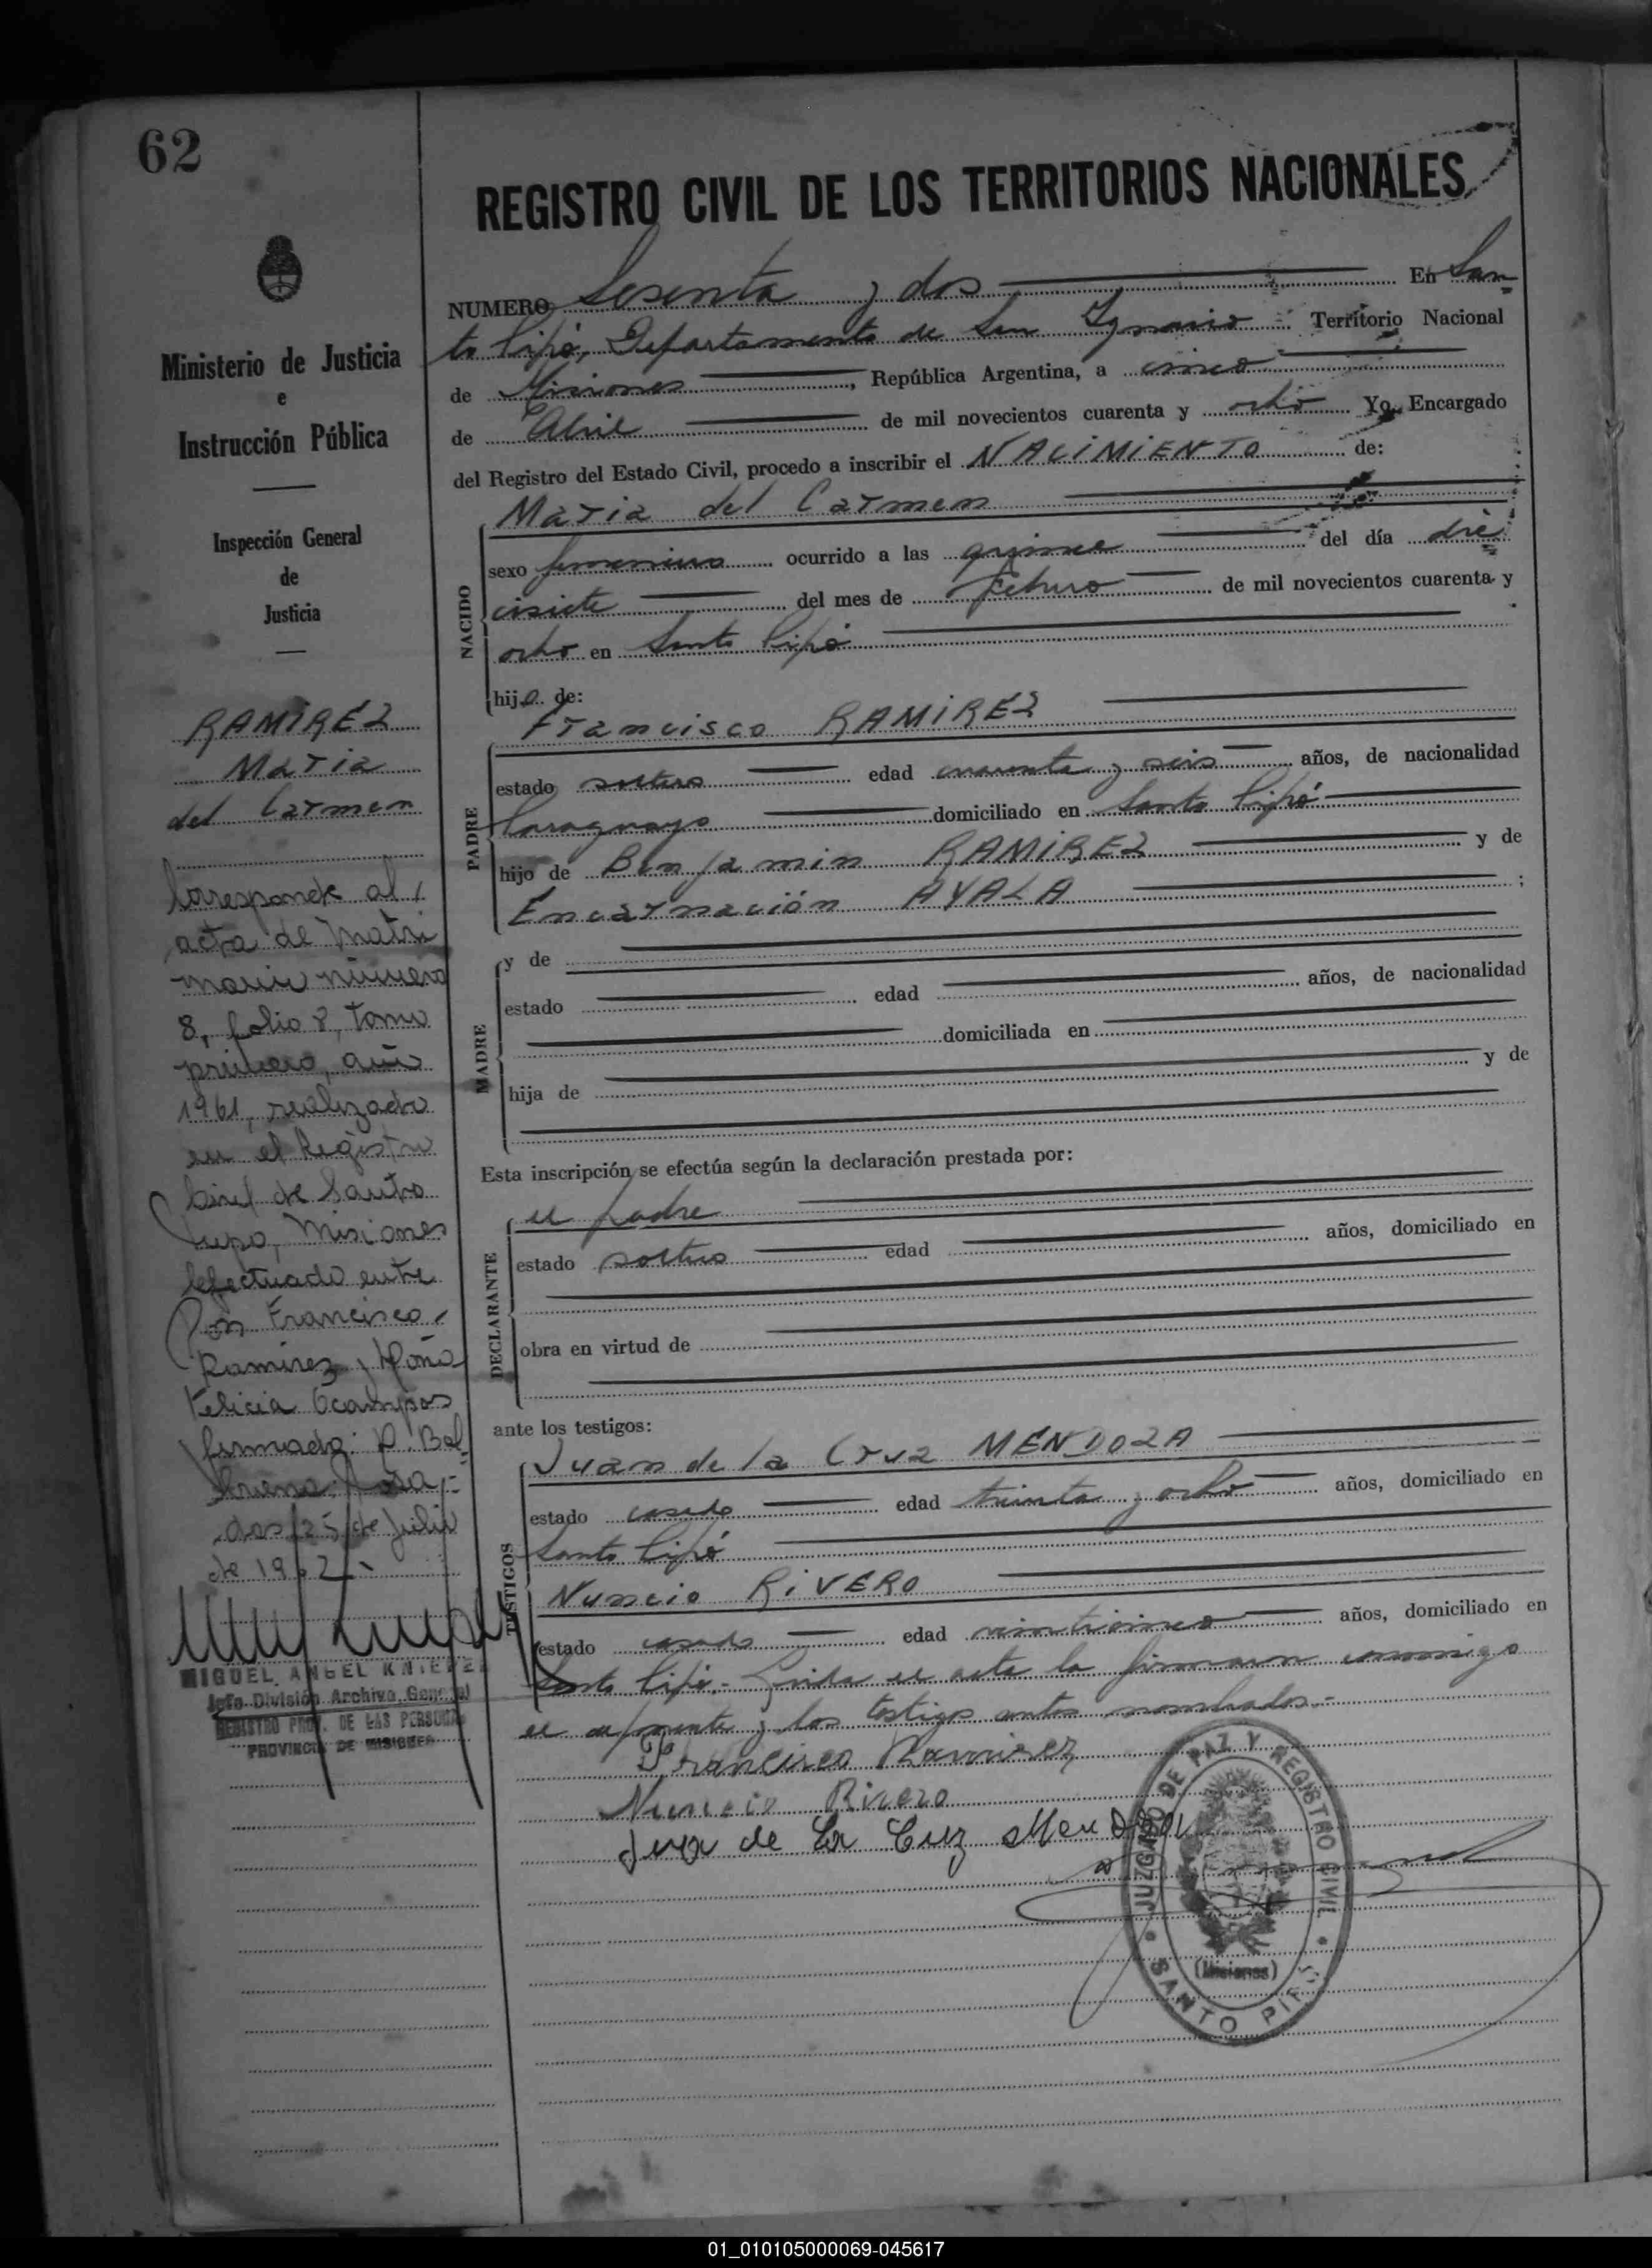 62
REGISTRO CIVIL DE LOS TERRITORIOS NACIONALES
Ministerio de Justicia
e
Instrucción Pública
Inspección General
de
Justicia
RAMIREZ
Maria
del Carmen
Corresponde al
acta de Matri
monio número
8, folio 8, tomo
primero, año
1961, realizado
en el Registro
Civil de Santo
Pipo, Misiones
efectuado entre
Don Francisco
Ramirez y Doña
Felicia Ocampos
firmado: P. Bal
de Julio
de 1962
MIGUEL ANGEL
Jefe División Archivo General
REGISTRO PROV. DE LAS PERSONAS
PROVINCIA DE MISIONES
NUMERO Sesenta y dos En San
to Pipó, Departamento de San Ignacio Territorio Nacional
de Misiones, República Argentina, a cinco
de Abril de mil novecientos cuarenta y ocho Yo, Encargado
del Registro del Estado Civil, procedo a inscribir el NACIMIENTO de:
NACIDO
Maria del Carmen
sexo femenino ocurrido a las quince del día die
cisiete del mes de Febrero de mil novecientos cuarenta y
ocho en Santo Pipó
hija de:
PADRE
Francisco RAMIREZ
estado soltero edad cuarenta y seis años, de nacionalidad
Paraguayo domiciliado en Santo Pipó
hijo de Benjamin RAMIREZ y de
Encarnación AYALA ;
MADRE
y de
estado edad años, de nacionalidad
domiciliada en
hija de y de
Esta inscripción se efectúa según la declaración prestada por:
DECLARANTE
el padre
estado soltero edad años, domiciliado en
obra en virtud de
ante los testigos:
TESTIGOS
Juan de la Cruz MENDOZA
estado casado edad treinta y ocho años, domiciliado en
Santo Pipó
Nuncio RIVERO
estado casado edad veinticinco años, domiciliado en
Santo Pipó.- Leida el acta la firmaron conmigo
el exponente y los testigos antes nombrados.-
Francisco Ramirez
Nuncio Rivero
Juan de la Cruz Mendoza
JUZGADO DE PAZ Y REGISTRO CIVIL
(Misiones)
SANTO PIPÓ
01_010105000069-045617